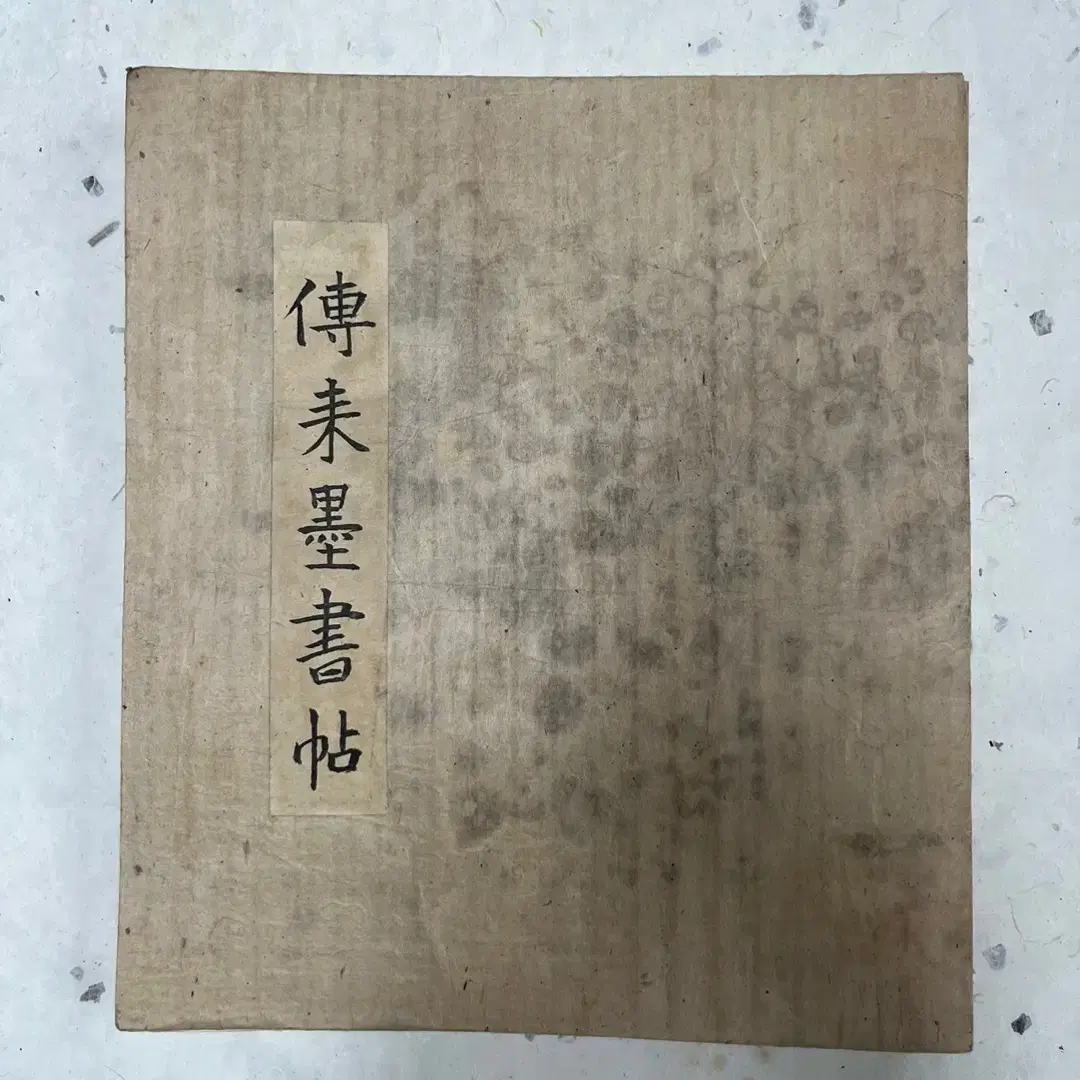 傳来墨書帖